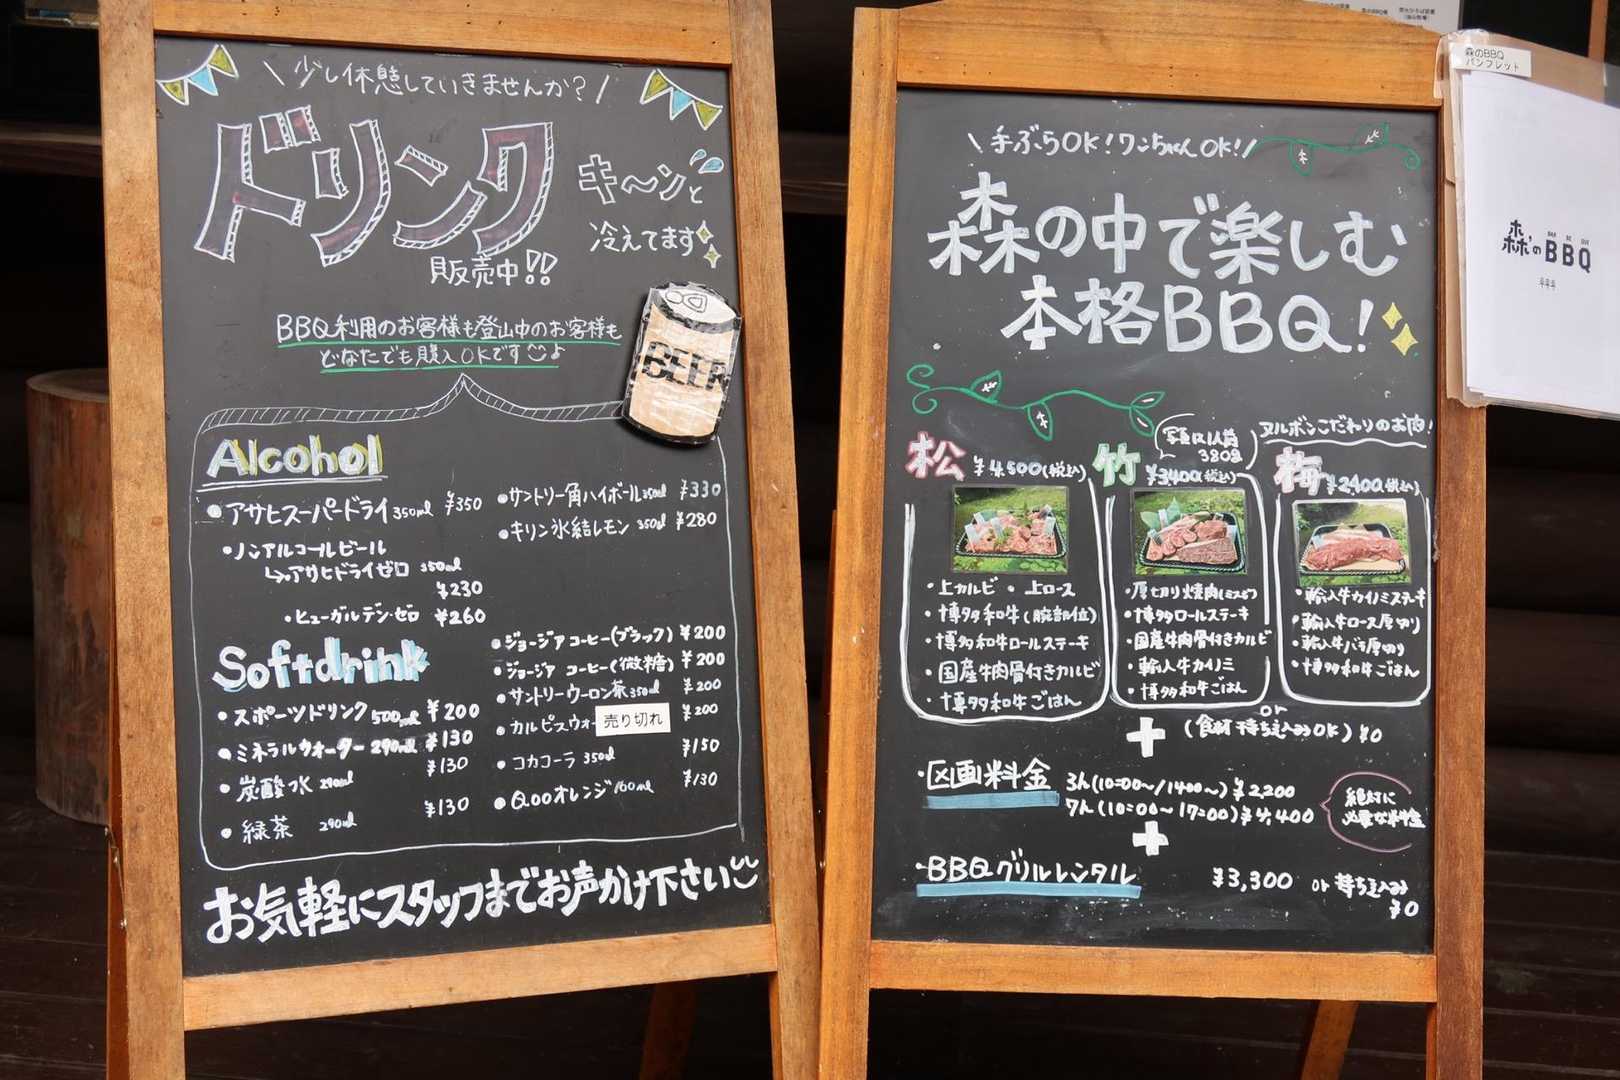 \ 少し休憩していきませんか? /
ドリンク
キ〜ンと
冷えてます
販売中!!
BBQ利用のお客様も登山中のお客様も
どなたでも購入OKです♪
BEER
Alcohol
・アサヒスーパードライ 350ml ¥350
・ノンアルコールビール
↳アサヒドライゼロ 350ml
¥230
・ヒューガルデン・ゼロ ¥260
・サントリー角ハイボール 350ml ¥330
・キリン氷結レモン 350ml ¥280
Softdrink
・スポーツドリンク 500ml ¥200
・ミネラルウォーター 290ml ¥130
・炭酸水 290ml ¥130
・緑茶 290ml ¥130
・ジョージア コーヒー(ブラック) ¥200
・ジョージア コーヒー(微糖) ¥200
・サントリーウーロン茶 350ml ¥200
・カルピスウォー 売り切れ ¥200
・コカコーラ 350ml ¥150
・Qooオレンジ 160ml ¥130
お気軽にスタッフまでお声かけ下さい
\ 手ぶらOK!ワンちゃんOK! /
森の中で楽しむ
本格BBQ!
写真は1人前
380g
ヌルボンこだわりのお肉!
松 ¥4,500(税込)
・上カルビ ・上ロース
・博多和牛(腕部位)
・博多和牛ロールステーキ
・国産牛肉骨付きカルビ
・博多和牛ごはん
竹 ¥3400(税込)
・厚切り焼肉(ミスジ)
・博多ロールステーキ
・国産牛肉骨付きカルビ
・輸入牛カイノミ
・博多和牛ごはん
梅 ¥2400(税込)
・輸入牛カイノミステーキ
・輸入牛ロース厚切り
・輸入牛バラ厚切り
・博多和牛ごはん
or
+ (食材持ち込みOK) ¥0
・区画料金 3h(10:00〜/14:00〜) ¥2,200
7h(10:00〜17:00) ¥4,400
絶対に
必要な料金
+
・BBQグリルレンタル ¥3,300 or 持ち込み
¥0
森のBBQ
パンフレット
森のBBQ